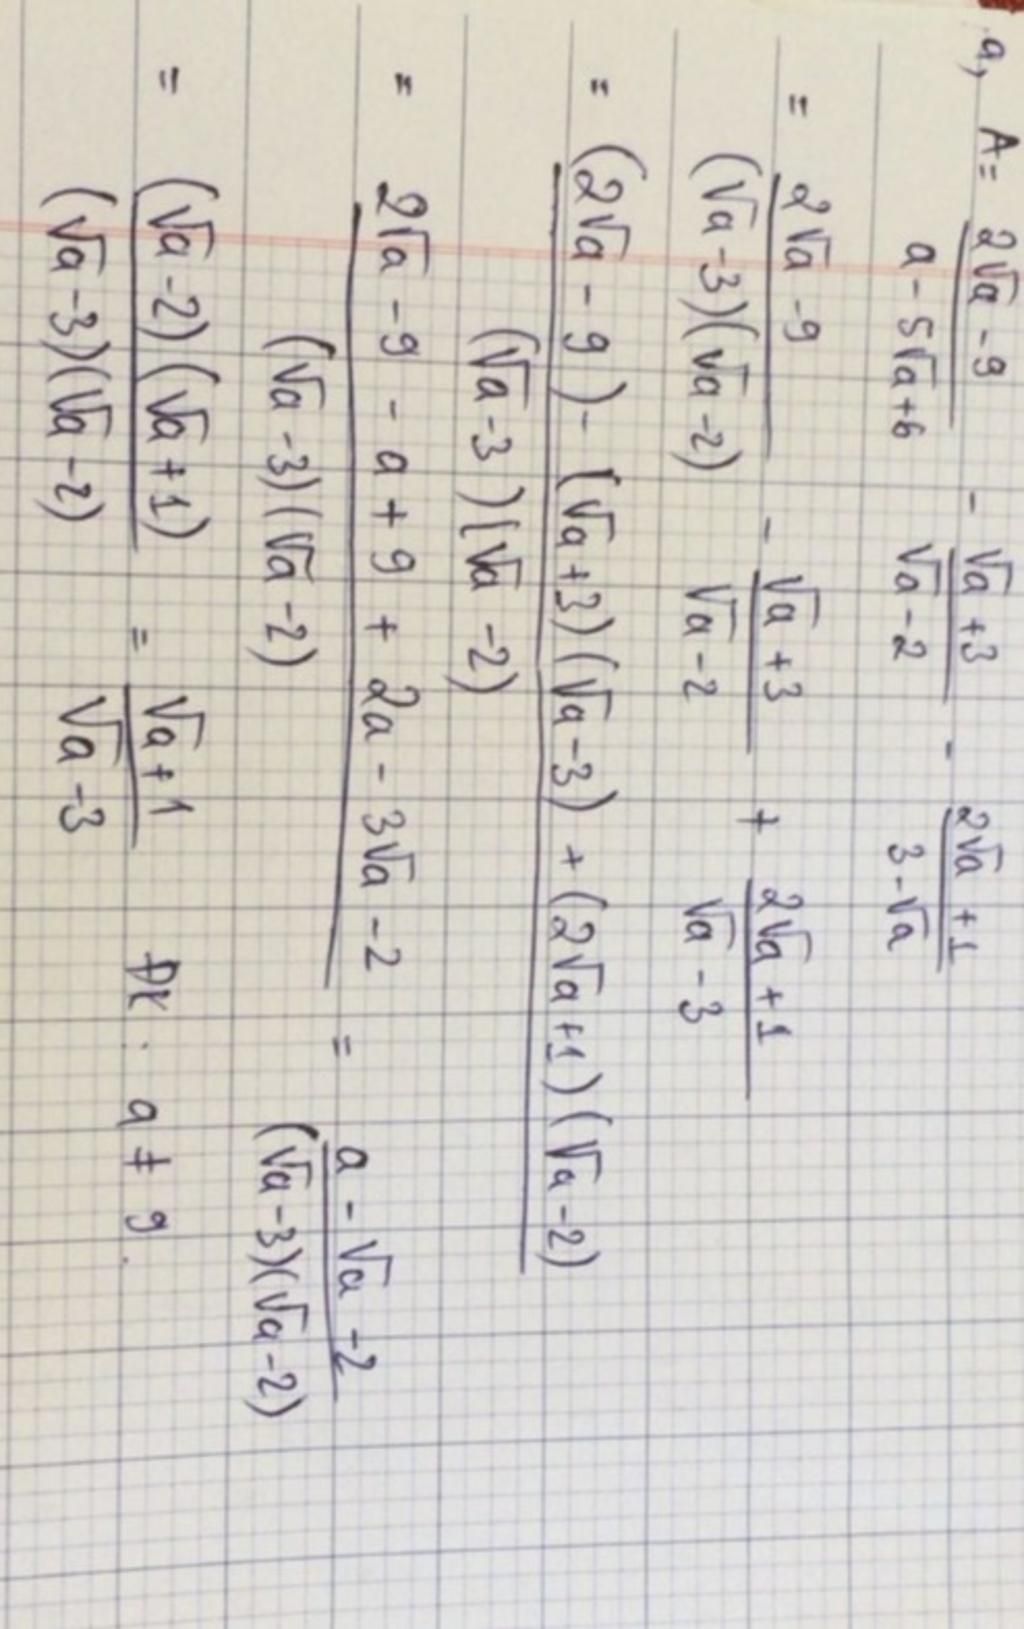 a, A = (2√a - 9)/(a - 5√a + 6) - (√a + 3)/(√a - 2) - (2√a + 1)/(3 - √a)
= (2√a - 9)/((√a - 3)(√a - 2)) - (√a + 3)/(√a - 2) + (2√a + 1)/(√a - 3)
= ((2√a - 9) - (√a + 3)(√a - 3) + (2√a + 1)(√a - 2))/((√a - 3)(√a - 2))
= (2√a - 9 - a + 9 + 2a - 3√a - 2)/((√a - 3)(√a - 2)) = (a - √a - 2)/((√a - 3)(√a - 2))
= ((√a - 2)(√a + 1))/((√a - 3)(√a - 2)) = (√a + 1)/(√a - 3) ĐK: a ≠ 9.